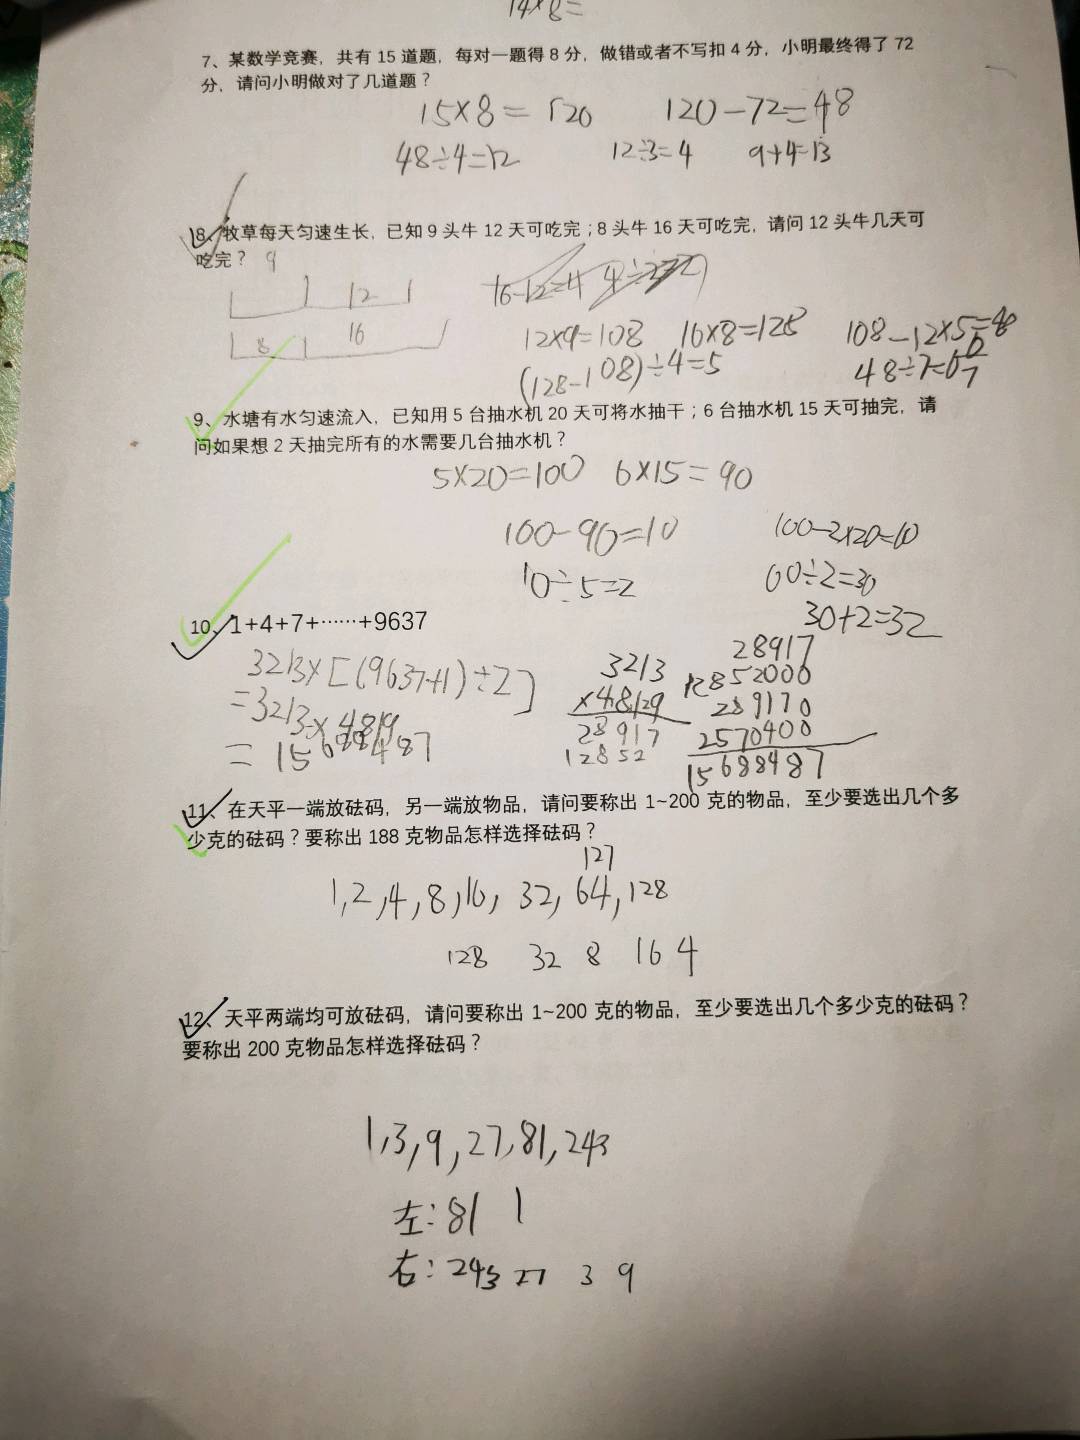 14×8=
7、某数学竞赛，共有 15 道题，每对一题得 8 分，做错或者不写扣 4 分，小明最终得了 72
分，请问小明做对了几道题？
15×8=120 120-72=48
48÷4=12 12÷3=4 9+4=13
8、牧草每天匀速生长，已知 9 头牛 12 天可吃完；8 头牛 16 天可吃完，请问 12 头牛几天可
吃完？ 9
12
8 16
16-12=4
12×9=108 16×8=128 108-12×5=48
(128-108)÷4=5 48÷7=6
9、水塘有水匀速流入，已知用 5 台抽水机 20 天可将水抽干；6 台抽水机 15 天可抽完，请
问如果想 2 天抽完所有的水需要几台抽水机？
5×20=100 6×15=90
100-90=10 100-2×20=60
10÷5=2 60÷2=30
30+2=32
10、1+4+7+……+9637
3213×[(9637+1)÷2]
=3213×4819
=15688487
3213
28917
12852
28917
12852000
289170
2570400
15688487
11、在天平一端放砝码，另一端放物品，请问要称出 1~200 克的物品，至少要选出几个多
少克的砝码？要称出 188 克物品怎样选择砝码？
127
1,2,4,8,16,32,64,128
128 32 8 16 4
12、天平两端均可放砝码，请问要称出 1~200 克的物品，至少要选出几个多少克的砝码？
要称出 200 克物品怎样选择砝码？
1,3,9,27,81,243
左：81 1
右：243 27 3 9